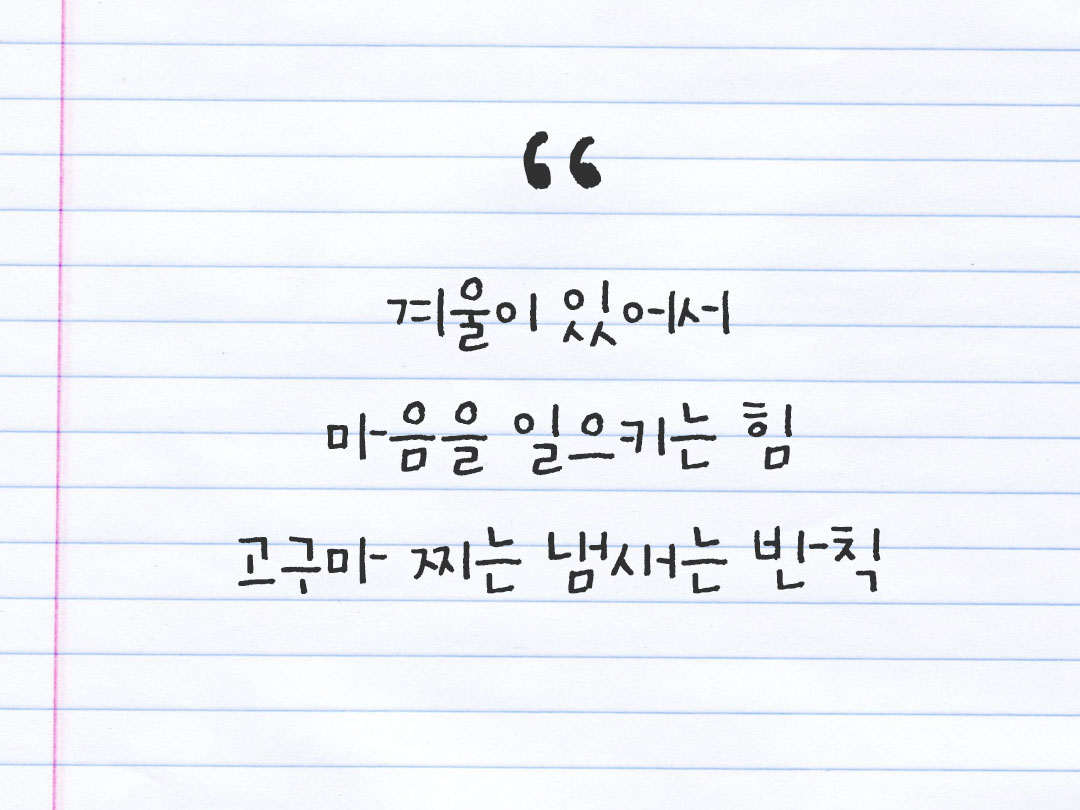 “
겨울이 있어서
마음을 일으키는 힘
고구마 찌는 냄새는 반칙